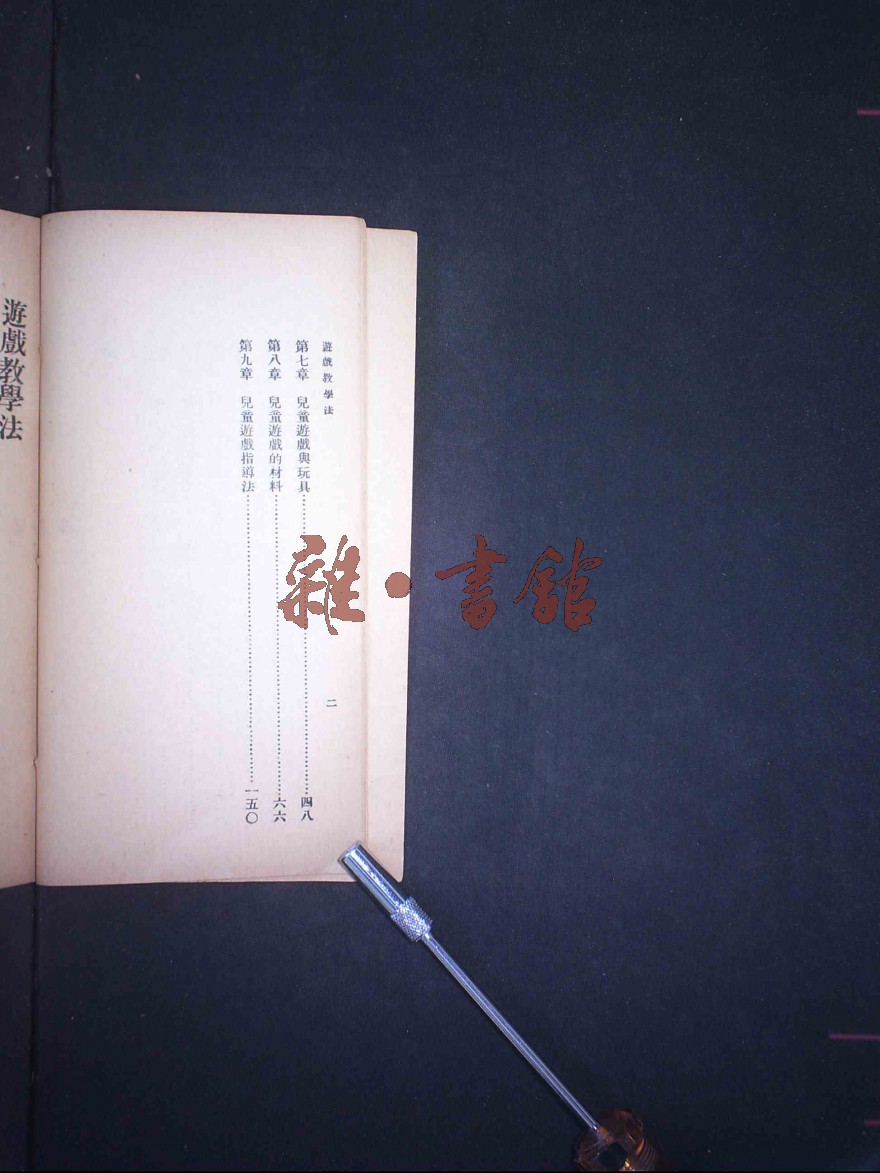 遊戲教學法
二
第七章　兒童遊戲與玩具……四八
第八章　兒童遊戲的材料……六六
第九章　兒童遊戲指導法……一五〇
遊戲教學法
雜・書館